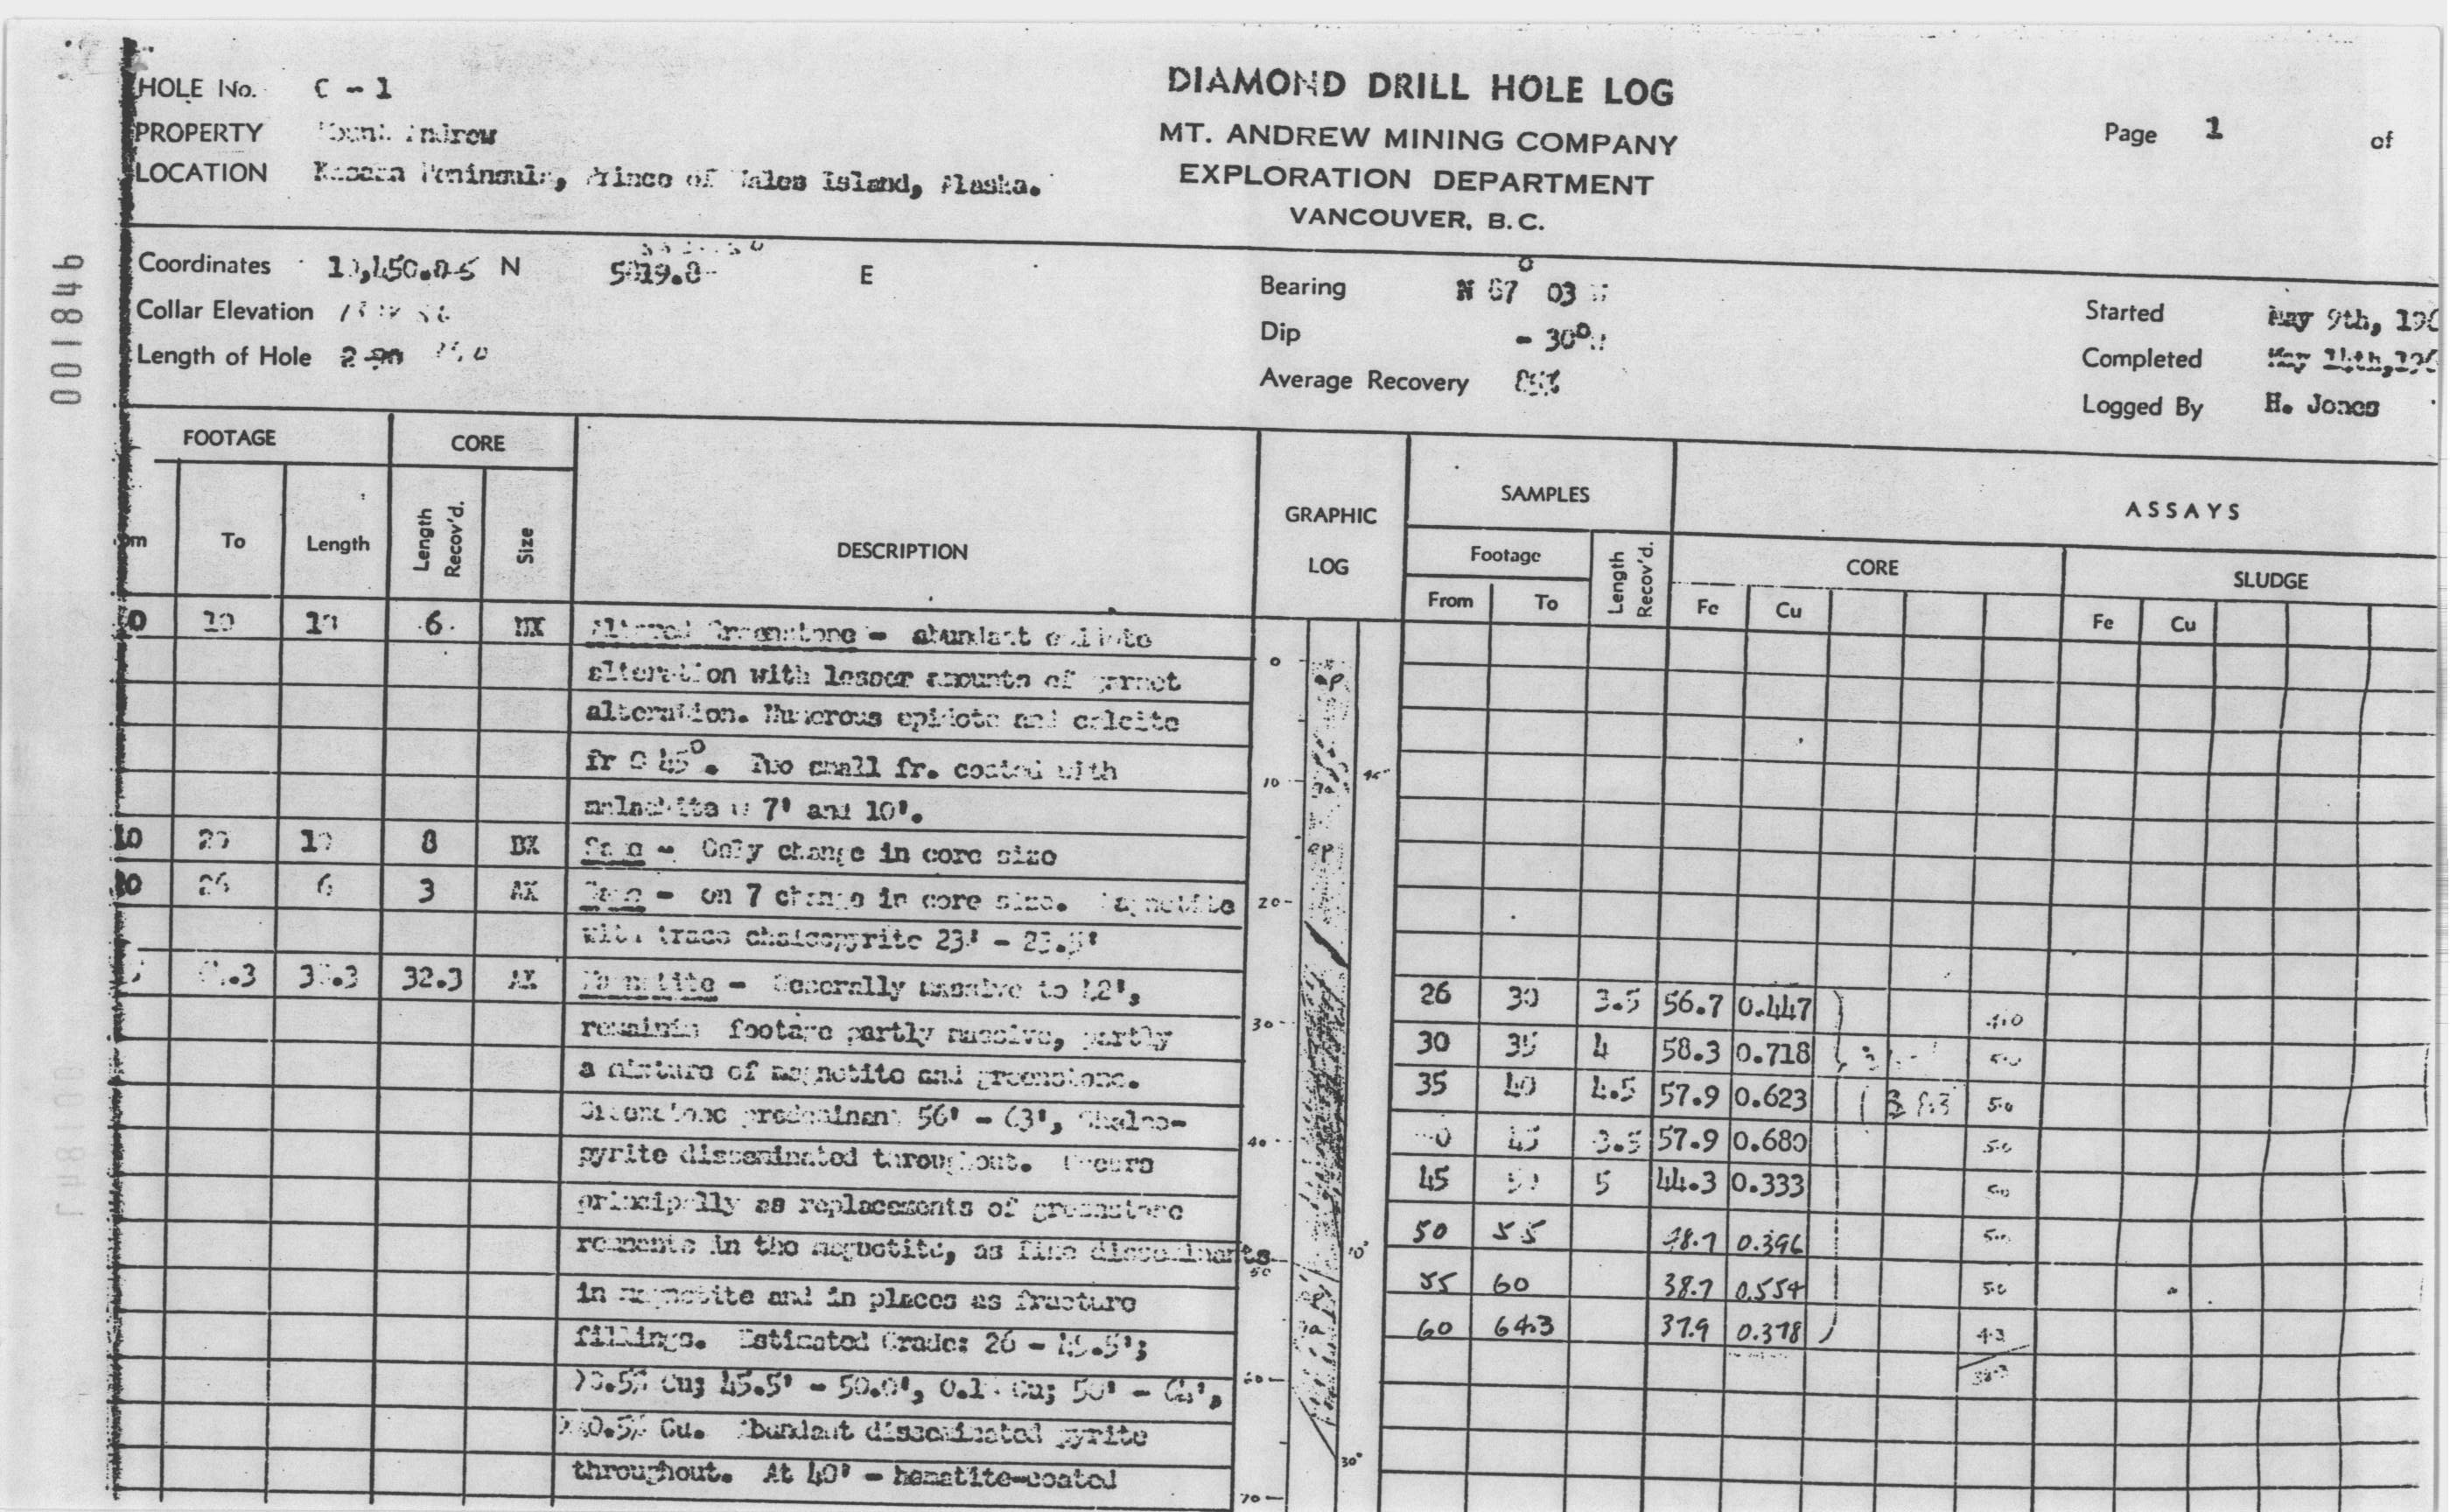 HOLE No. C - 1
PROPERTY Andrew
LOCATION Kasaan Peninsula, Prince of Wales Island, Alaska.
DIAMOND DRILL HOLE LOG
MT. ANDREW MINING COMPANY
EXPLORATION DEPARTMENT
VANCOUVER, B.C.
Page 1 of
001846
Coordinates N 5019.8 E
Collar Elevation
Length of Hole
Bearing N 67° 03
Dip - 30°
Average Recovery
Started May 9th, 19
Completed May 14th, 19
Logged By H. Jones
FOOTAGE CORE DESCRIPTION GRAPHIC LOG SAMPLES ASSAYS
om To Length Length Recov'd. Size
Footage Length Recov'd. CORE SLUDGE
From To Fe Cu Fe Cu
0 10 10 6 Altered Greenstone - abundant epidote
alteration with lesser amounts of garnet
alteration. Numerous epidote and calcite
fr @ 45°. Two small fr. coated with
malachite @ 7' and 10'.
10 20 10 8 BX Same - Only change in core size
20 26 6 3 AX Same - on 7 change in core size. Magnetite
with trace chalcopyrite 23' - 23.5'
38.3 32.3 AX Magnetite - Generally massive to 42',
remainin footage partly massive, partly
a mixture of magnetite and greenstone.
Greenstone predominant 56' - 63', Chalco-
pyrite disseminated throughout. Occurs
principally as replacements of greenstone
remnants in the magnetite, as fine disseminants
in magnetite and in places as fracture
fillings. Estimated Grade: 26 - 45.5';
0.5% Cu; 45.5' - 50.0', 0.1 Cu; 50' - 64',
0.5% Cu. Abundant disseminated pyrite
throughout. At 40' - hematite-coated
0
ep
10
45°
ep
20
30
40
50
10°
ga
60
30°
70
26 30 3.5 56.7 0.447 4.0
30 35 4 58.3 0.718 5.0
35 40 4.5 57.9 0.623 38.3 5.0
45 3.5 57.9 0.680 5.0
45 50 5 44.3 0.333 5.0
50 55 48.7 0.396 5.0
55 60 38.7 0.554 5.0
60 64.3 37.9 0.378 4.3
38.3